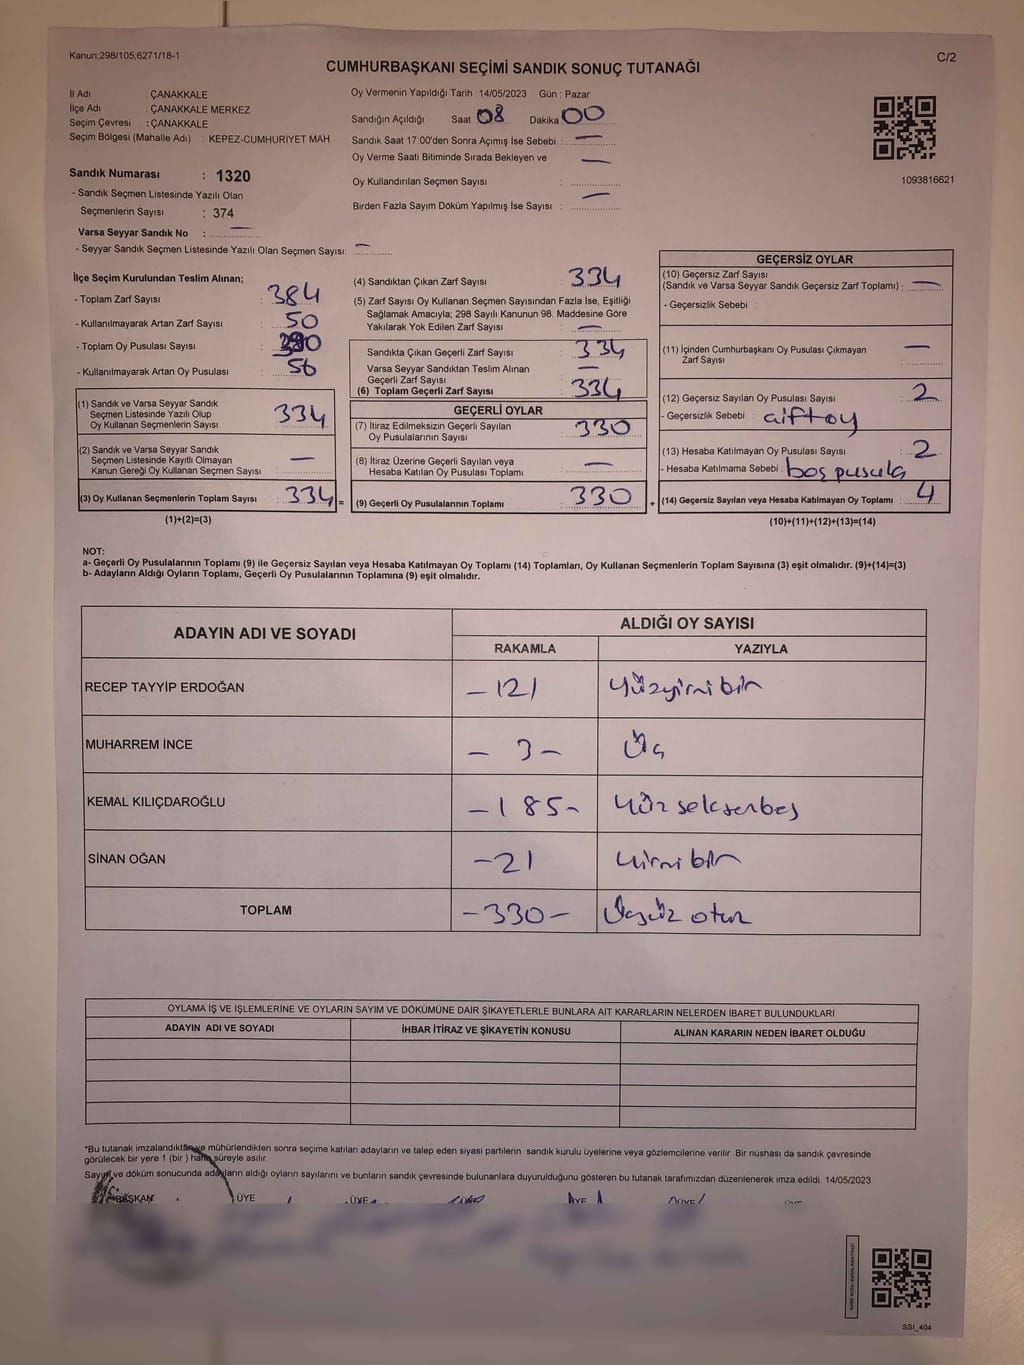 Kanun;298/105;6271/18-1
C/2
CUMHURBAŞKANI SEÇİMİ SANDIK SONUÇ TUTANAĞI
İl Adı : ÇANAKKALE
İlçe Adı : ÇANAKKALE MERKEZ
Seçim Çevresi : ÇANAKKALE
Seçim Bölgesi (Mahalle Adı) : KEPEZ-CUMHURİYET MAH
Oy Vermenin Yapıldığı Tarih : 14/05/2023 Gün : Pazar
Sandığın Açıldığı Saat 08 Dakika 00
Sandık Saat 17:00'den Sonra Açımış İse Sebebi : —
Oy Verme Saati Bitiminde Sırada Bekleyen ve —
Oy Kullandırılan Seçmen Sayısı :
Birden Fazla Sayım Döküm Yapılmış İse Sayısı : —
1093816621
Sandık Numarası : 1320
- Sandık Seçmen Listesinde Yazılı Olan
Seçmenlerin Sayısı : 374
Varsa Seyyar Sandık No : —
- Seyyar Sandık Seçmen Listesinde Yazılı Olan Seçmen Sayısı: —
İlçe Seçim Kurulundan Teslim Alınan;
- Toplam Zarf Sayısı : 384
- Kullanılmayarak Artan Zarf Sayısı : 50
- Toplam Oy Pusulası Sayısı :
- Kullanılmayarak Artan Oy Pusulası : 56
(1) Sandık ve Varsa Seyyar Sandık
Seçmen Listesinde Yazılı Olup
Oy Kullanan Seçmenlerin Sayısı 334
(2) Sandık ve Varsa Seyyar Sandık
Seçmen Listesinde Kayıtlı Olmayan
Kanun Gereği Oy Kullanan Seçmen Sayısı —
(3) Oy Kullanan Seçmenlerin Toplam Sayısı 334 =
(1)+(2)=(3)
(4) Sandıktan Çıkan Zarf Sayısı : 334
(5) Zarf Sayısı Oy Kullanan Seçmen Sayısından Fazla İse, Eşitliği
Sağlamak Amacıyla; 298 Sayılı Kanunun 98. Maddesine Göre
Yakılarak Yok Edilen Zarf Sayısı : —
Sandıkta Çıkan Geçerli Zarf Sayısı : 334
Varsa Seyyar Sandıktan Teslim Alınan
Geçerli Zarf Sayısı : —
(6) Toplam Geçerli Zarf Sayısı : 334
GEÇERLİ OYLAR
(7) İtiraz Edilmeksizin Geçerli Sayılan
Oy Pusulalarının Sayısı : 330
(8) İtiraz Üzerine Geçerli Sayılan veya
Hesaba Katılan Oy Pusulası Toplamı : —
(9) Geçerli Oy Pusulalarının Toplamı : 330 +
GEÇERSİZ OYLAR
(10) Geçersiz Zarf Sayısı
(Sandık ve Varsa Seyyar Sandık Geçersiz Zarf Toplamı) : —
- Geçersizlik Sebebi :
(11) İçinden Cumhurbaşkanı Oy Pusulası Çıkmayan —
Zarf Sayısı
(12) Geçersiz Sayılan Oy Pusulası Sayısı 2
- Geçersizlik Sebebi : çift oy
(13) Hesaba Katılmayan Oy Pusulası Sayısı : 2
- Hesaba Katılmama Sebebi : boş pusula
(14) Geçersiz Sayılan veya Hesaba Katılmayan Oy Toplamı : 4
(10)+(11)+(12)+(13)=(14)
NOT:
a- Geçerli Oy Pusulalarının Toplamı (9) ile Geçersiz Sayılan veya Hesaba Katılmayan Oy Toplamı (14) Toplamları, Oy Kullanan Seçmenlerin Toplam Sayısına (3) eşit olmalıdır. (9)+(14)=(3)
b- Adayların Aldığı Oyların Toplamı, Geçerli Oy Pusulalarının Toplamına (9) eşit olmalıdır.
ADAYIN ADI VE SOYADI
ALDIĞI OY SAYISI
RAKAMLA YAZIYLA
RECEP TAYYİP ERDOĞAN -121 Yüzyirmibir
MUHARREM İNCE - 3 - Üç
KEMAL KILIÇDAROĞLU -185- Yüzseksenbeş
SİNAN OĞAN -21 Yirmibir
TOPLAM -330- Üçyüz otuz
OYLAMA İŞ VE İŞLEMLERİNE VE OYLARIN SAYIM VE DÖKÜMÜNE DAİR ŞİKAYETLERLE BUNLARA AİT KARARLARIN NELERDEN İBARET BULUNDUKLARI
ADAYIN ADI VE SOYADI İHBAR İTİRAZ VE ŞİKAYETİN KONUSU ALINAN KARARIN NEDEN İBARET OLDUĞU
*Bu tutanak imzalandıktan ve mühürlendikten sonra seçime katılan adayların ve talep eden siyasi partilerin sandık kurulu üyelerine veya gözlemcilerine verilir. Bir nüshası da sandık çevresinde
görülecek bir yere 1 (bir ) hafta süreyle asılır.
Sayım ve döküm sonucunda adayların aldığı oyların sayılarını ve bunların sandık çevresinde bulunanlara duyurulduğunu gösteren bu tutanak tarafımızdan düzenlenerek imza edildi. 14/05/2023
BAŞKAN ÜYE ÜYE ÜYE ÜYE
SSI_404